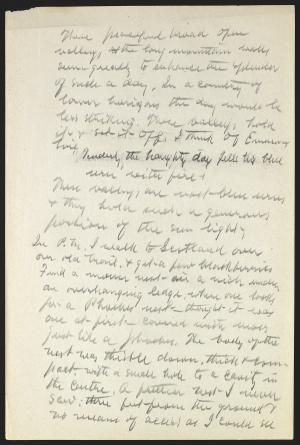 These peaceful broad open
valleys, & the long mountain walls
seem greatly to enhance the splendor
of such a day. In a country of
lower horizons the day would be
less striking. These valleys hold
it & set it off. I think of Emerson's
line,
"Pondent, the haughty day fills his blue
urn with fire".
These valleys are vast blue urns
& they hold such a generous
portion of the sun light.
In P.M. I walk to Scotland over
our old trail, & get a few blackberries
Find a mouse nest in a nich under
an overhanging ledge, where one looks
for a Phoebes' nest – thought it was
one at first – covered with moss
just like a phoebes. The body of the
nest was thistle down, thick & com-
pact, with a small hole to a cavity in
the centre. A prettier nest I never
saw; three feet from the ground &
no means of access as I could see